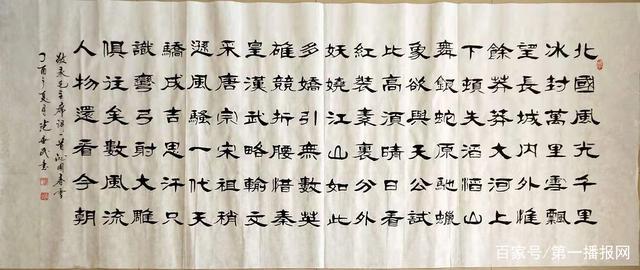 北國風光千里
冰封萬里雪飄
望長城内外惟
餘莽莽大河上
下頓失滔滔山
舞銀蛇原馳蠟
象欲與天公試
比高須晴日看
紅裝素裹分外
妖嬈江山如此
多嬌引無數英
雄競折腰惜秦
皇漢武略輸文
采唐宗宋祖稍
遜風騷一代天
驕成吉思汗只
識彎弓射大雕
俱往矣數風流
人物還看今朝
敬录毛主席词一首沁园春雪
丁酉之夏月
百家号/第一播报网